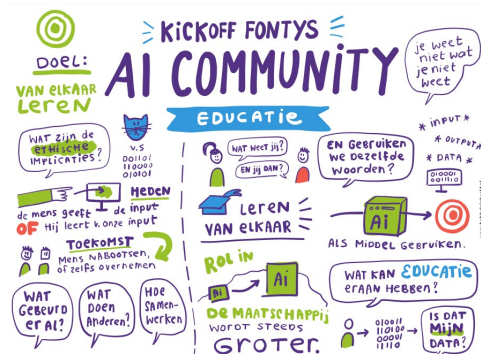 KICKOFF FONTYS
AI COMMUNITY
EDUCATIE
DOEL:
VAN ELKAAR
LEREN
je weet
niet wat
je niet
weet
WAT ZIJN DE
ETHISCHE
IMPLICATIES?
V.S
001101
110000
010101
HEDEN
de mens geeft de input
OF Hij leert v. onze input
TOEKOMST
MENS NABOOTSEN,
OF ZELFS OVERNEMEN
WAT
GEBEURD
ER AI?
WAT
DOEN
ANDEREN?
HOE
SAMEN-
WERKEN
WAT WEET JIJ?
EN JIJ DAN?
LEREN
VAN ELKAAR
ROL IN
Ai
Ai
DE MAATSCHAPPIJ
WORDT STEEDS
GROTER.
EN GEBRUIKEN
WE DEZELFDE
WOORDEN?
* INPUT *
* OUTPUT *
* DATA *
010001
001110
Ai
ALS MIDDEL GEBRUIKEN.
WAT KAN EDUCATIE
ERAAN HEBBEN?
010011
110100
00001
11110
IS DAT
MIJN
DATA?